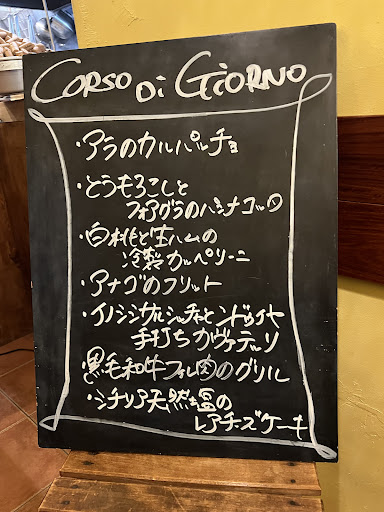 CORSO Di GiORNO
・アラのカルパッチョ
・とうもろこしと
フォアグラのハミナコッタ
・白桃と生ハムの
冷製カッペリーニ
・アナゴのフリット
・イノシシサルシッチャとンドゥイヤ
手打ちカヴァテッリ
・黒毛和牛フィレ肉のグリル
・シチリア天然塩の
レアチーズケーキ